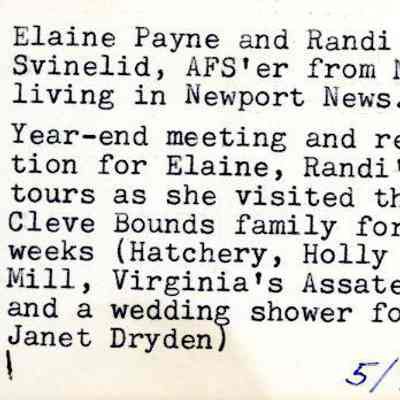 Elaine Payne and Randi
Svinelid, AFS'er from
living in Newport News.
Year-end meeting and re
tion for Elaine, Randi'
tours as she visited th
Cleve Bounds family for
weeks (Hatchery, Holly
Mill, Virginia's Assate
and a wedding shower fo
Janet Dryden)
5/